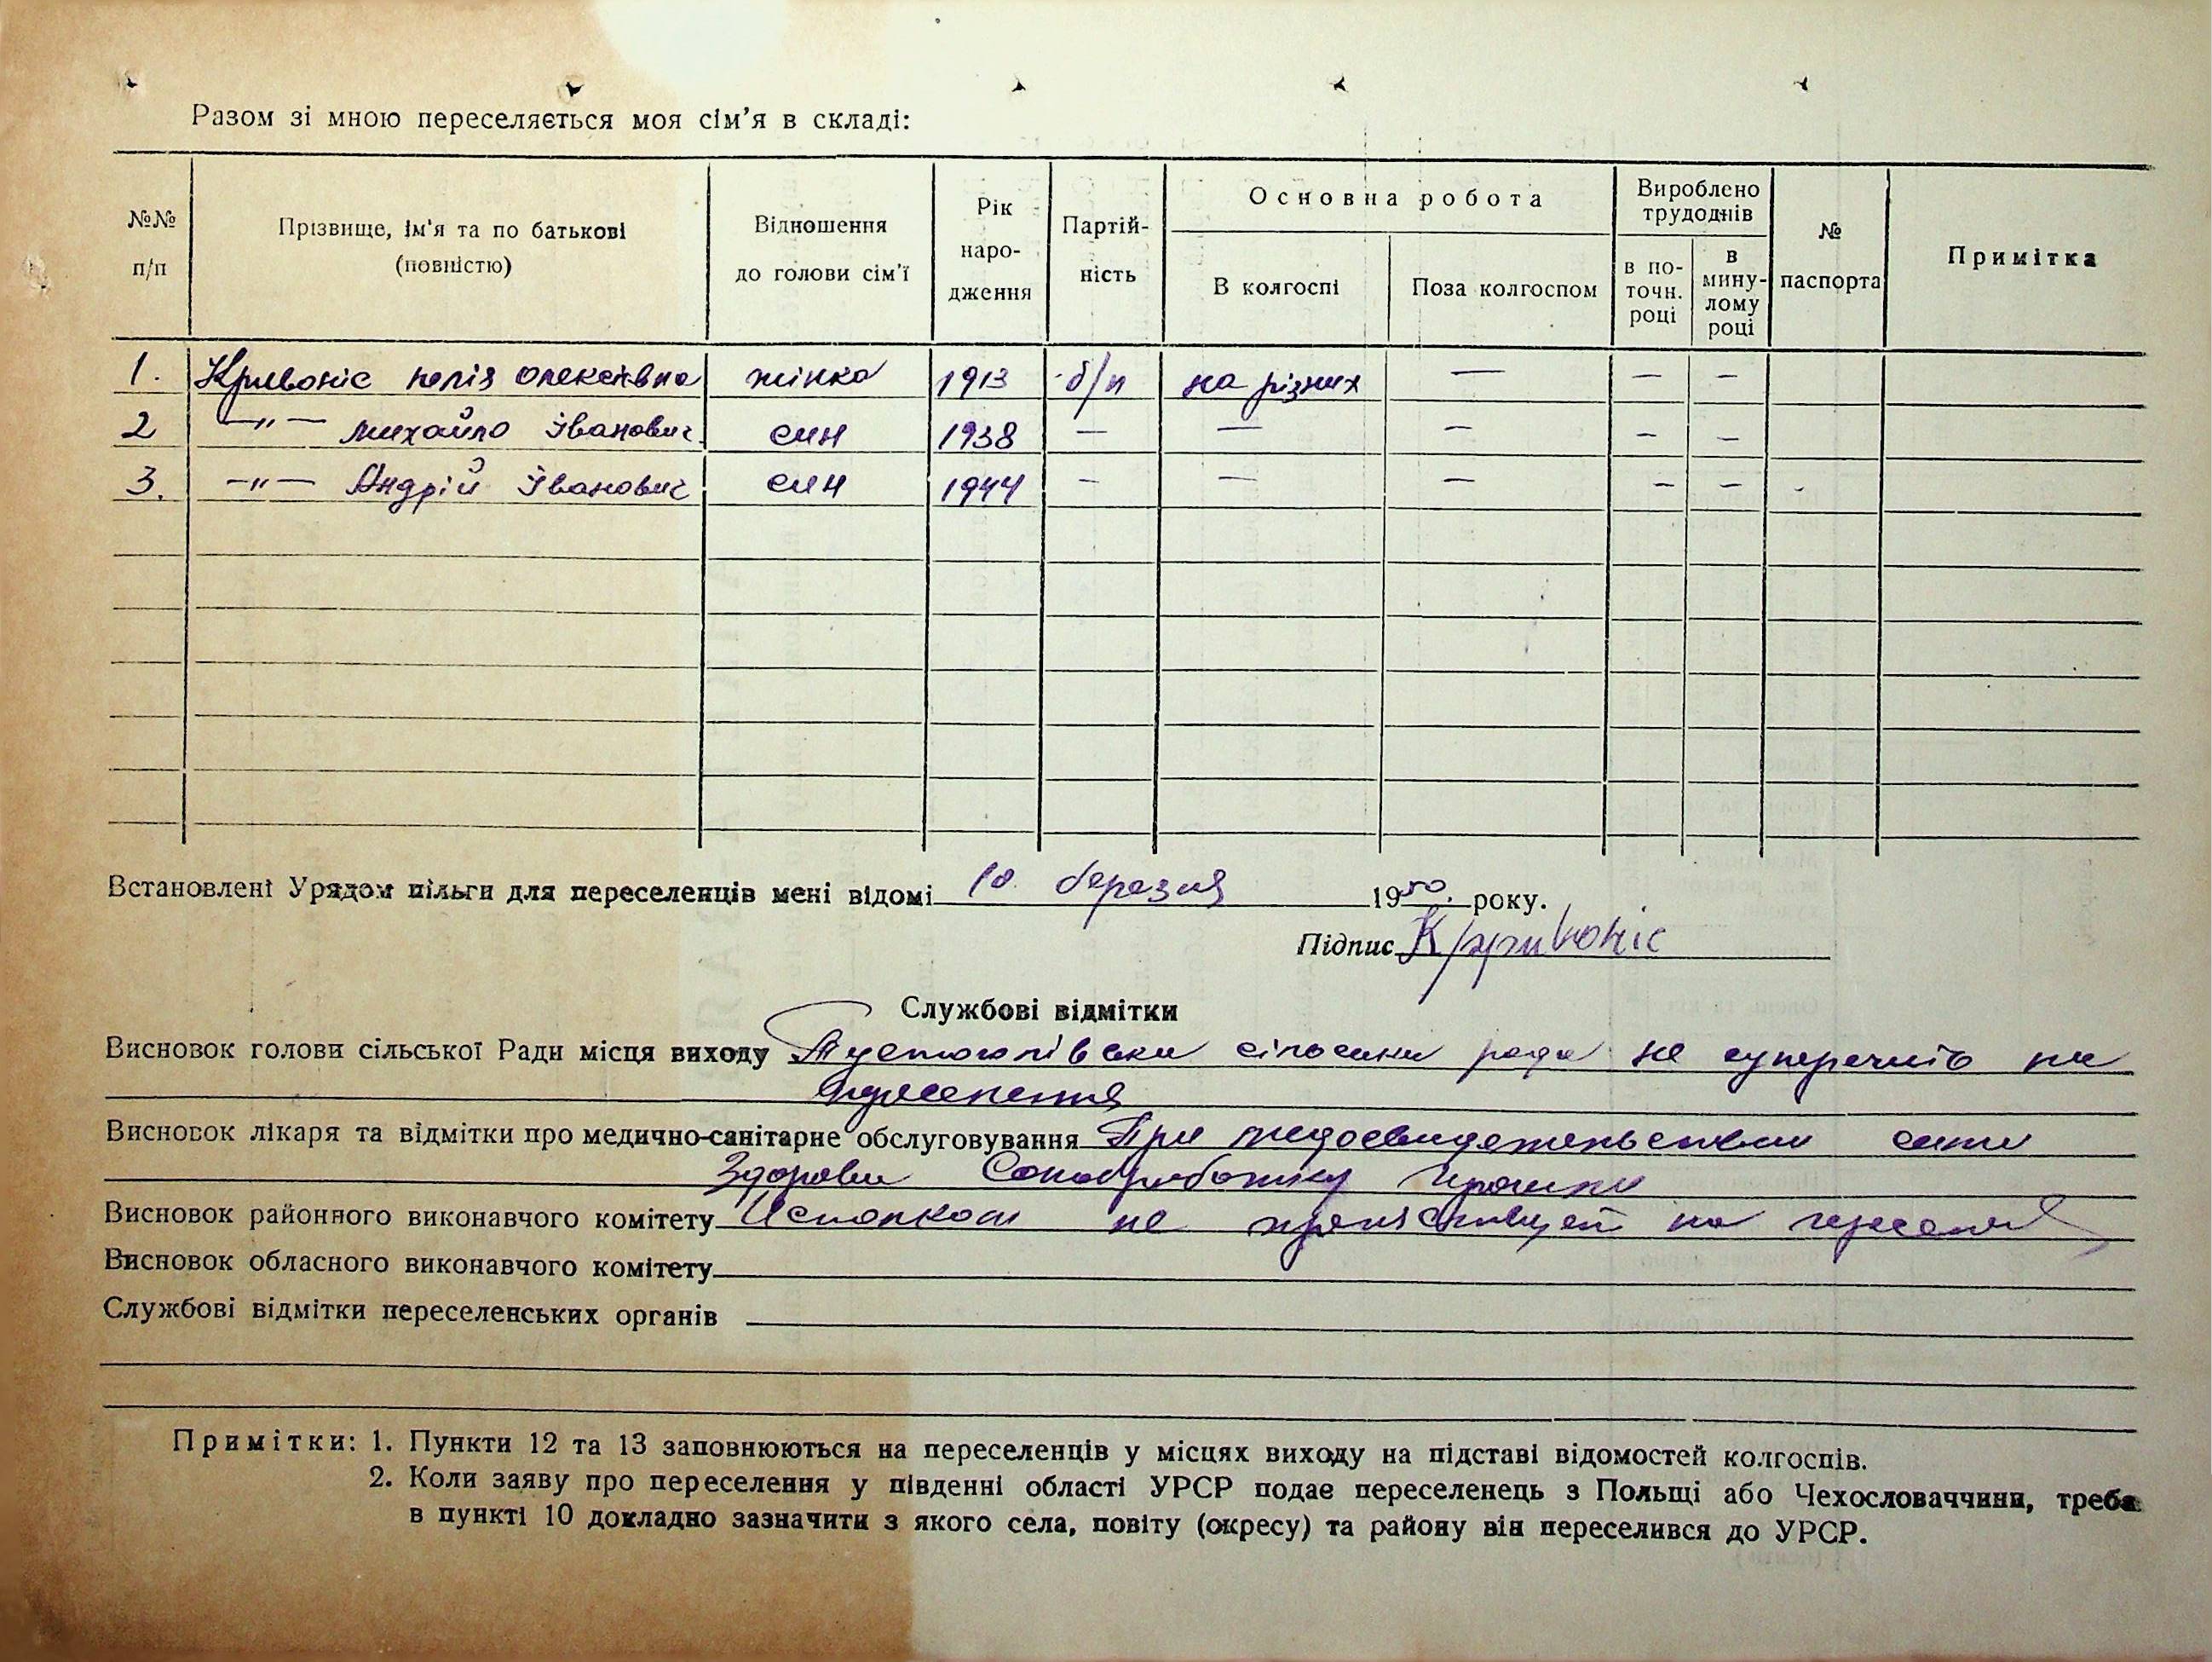 Разом зі мною переселяється моя сім'я в складі:
№№ п/п
Прізвище, ім'я та по батькові (повністю)
Відношення до голови сім'ї
Рік народження
Партійність
Основна робота
В колгоспі
Поза колгоспом
Вироблено трудоднів
в поточн. році
в минулому році
№ паспорта
Примітка
1. Кривоніс Олексіївна жінка 1913 б/п на різних — — —
2 —"— Михайло Іванович син 1938 — — — — —
3. —"— Андрій Іванович син 1944 — — — — —
Встановлені Урядом пільги для переселенців мені відомі 10 березня 1950. року.
Підпис Кривоніс
Службові відмітки
Висновок голови сільської Ради місця виходу сільська рада не суперечить на
переселення
Висновок лікаря та відмітки про медично-санітарне обслуговування При медосвидетельствовании
Здоровы
Висновок районного виконавчого комітету Исполком не препятствует на
Висновок обласного виконавчого комітету
Службові відмітки переселенських органів
Примітки: 1. Пункти 12 та 13 заповнюються на переселенців у місцях виходу на підставі відомостей колгоспів.
2. Коли заяву про переселення у південні області УРСР подає переселенець з Польщі або Чехословаччини, треба
в пункті 10 докладно зазначити з якого села, повіту (окресу) та району він переселився до УРСР.